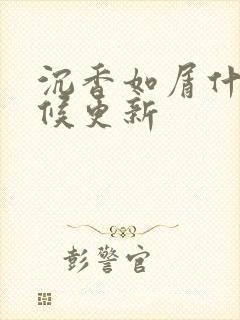 沉香如屑什
候更新
彭警官